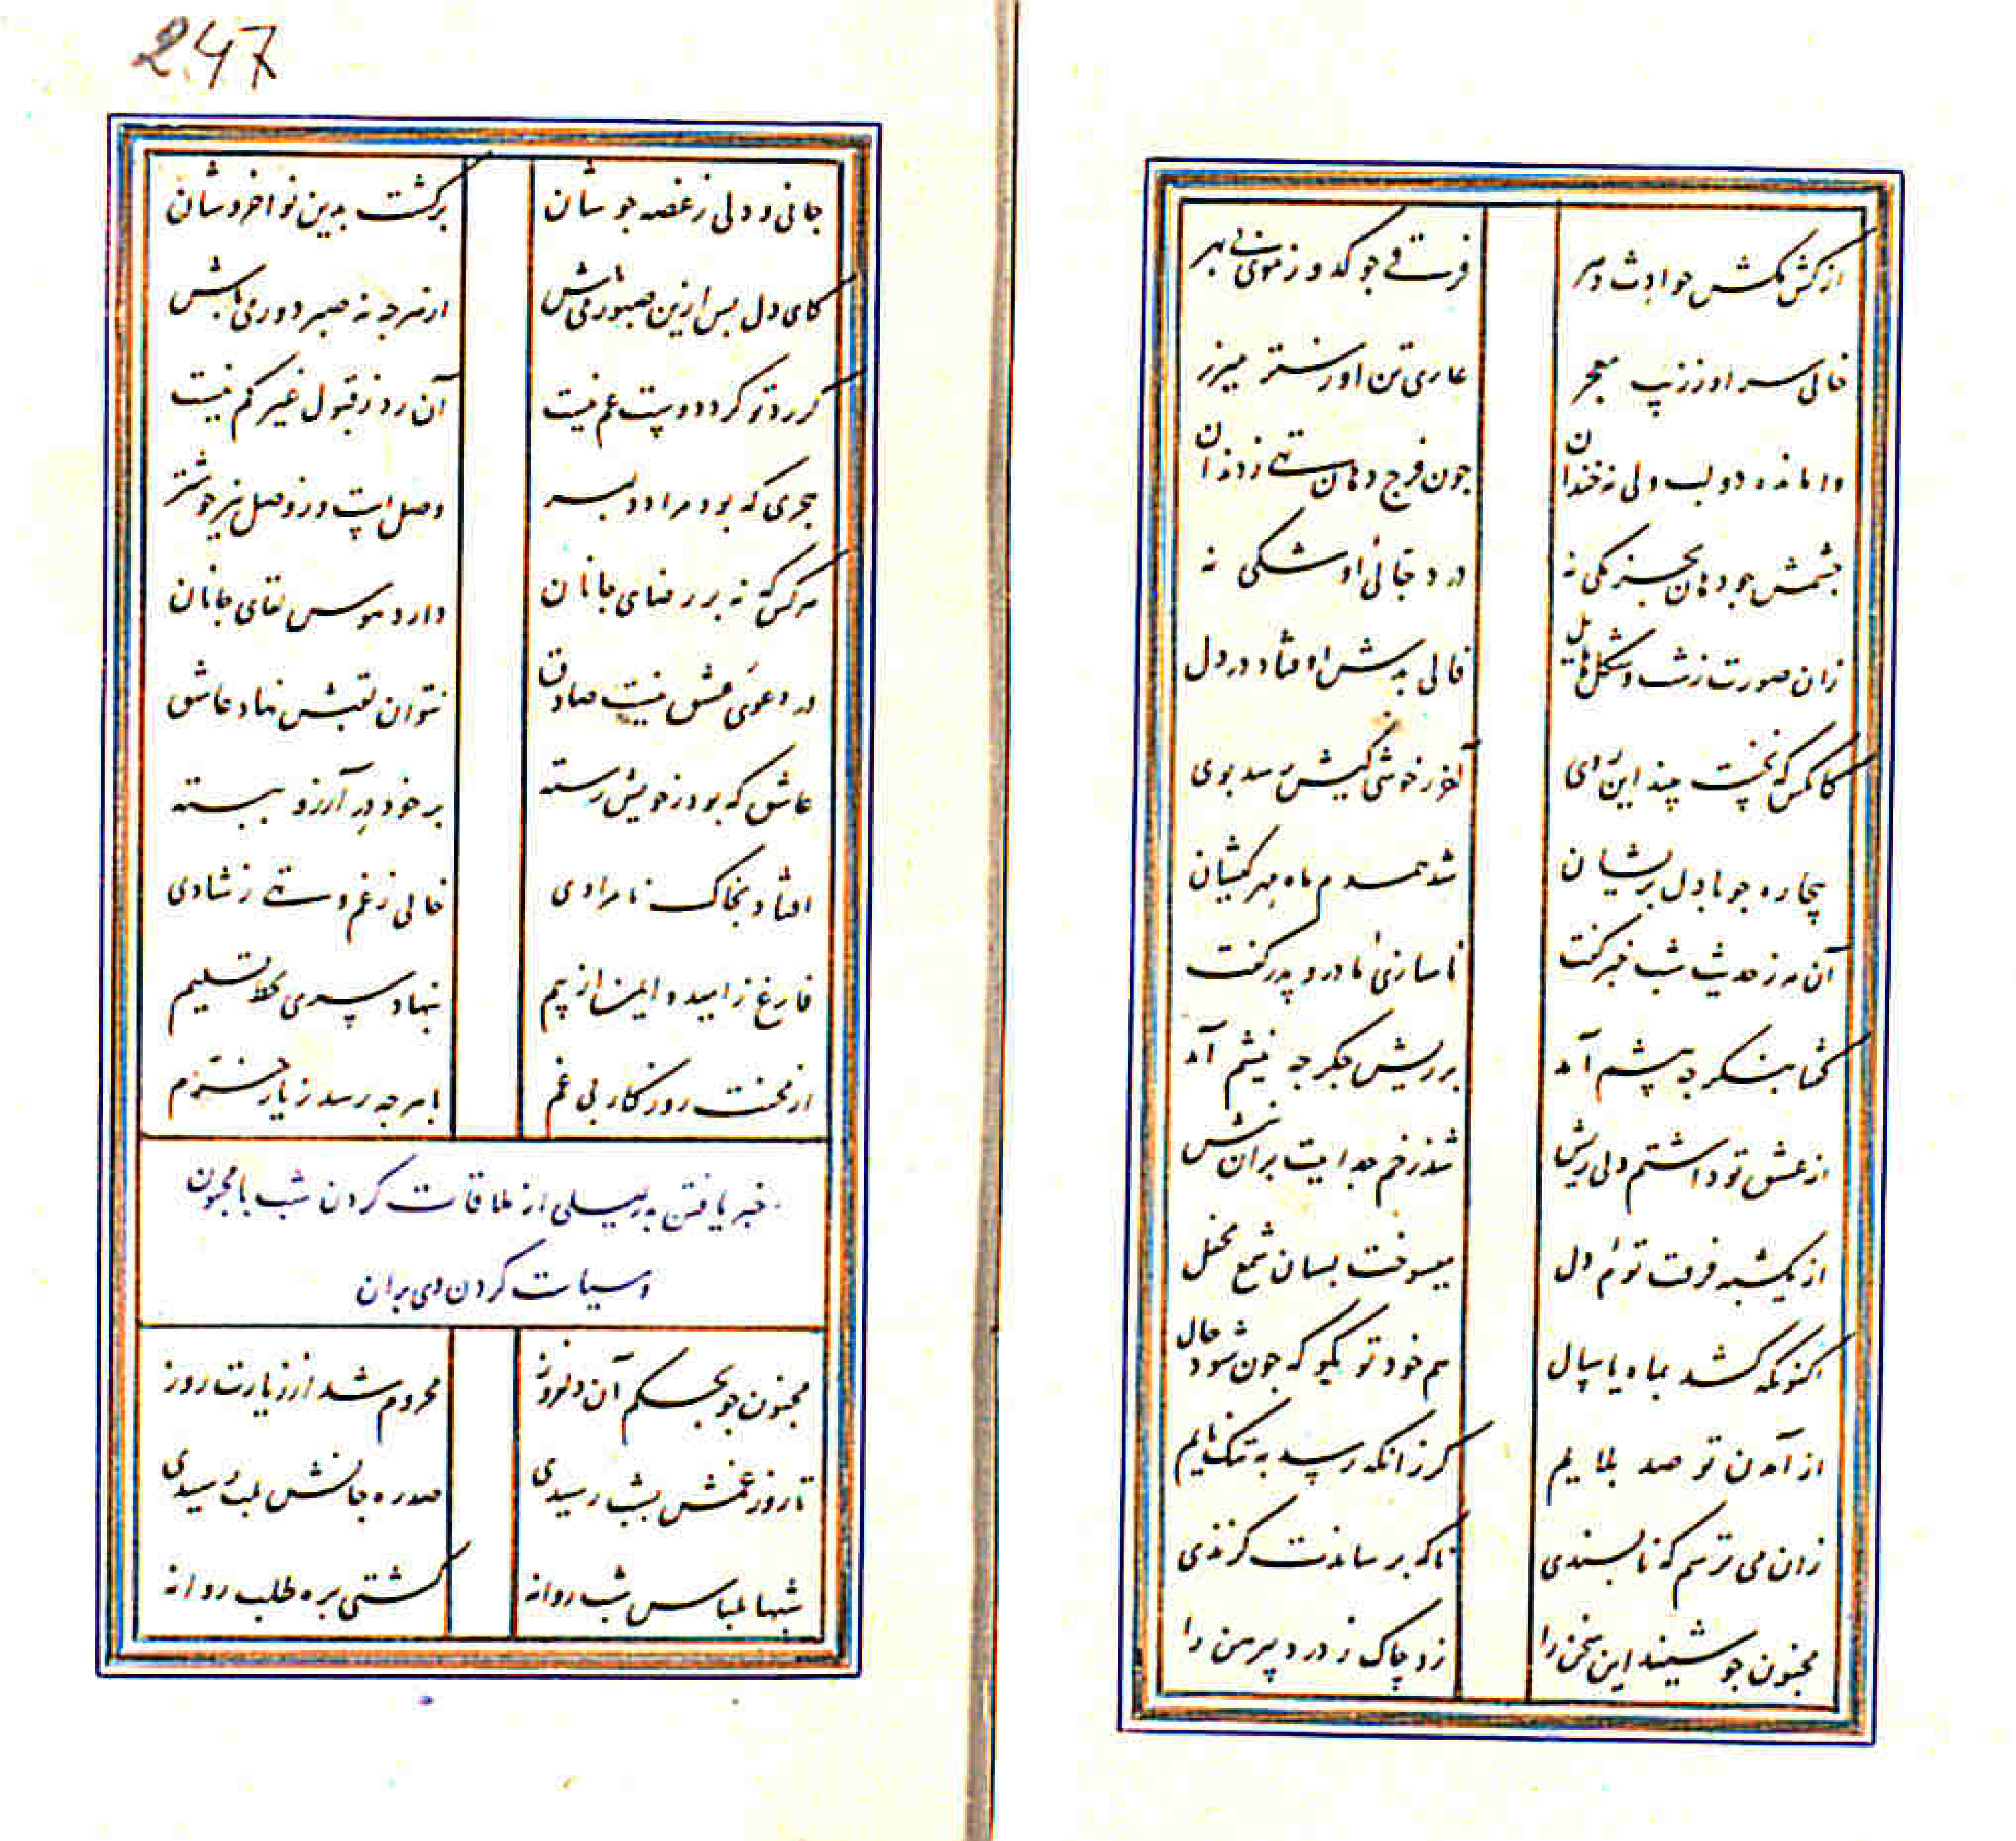 از کش مکش حوادث دهر
فرتوتی جو کدو ز موی بی بهر
خالی سر او ز زیب معجر
عاری تن او ز ستر میزر
وامانده دو لب ولی نه خندان
جون فرج دهان تهی ز دندان
جشمش بجو دهان بجز یکی نه
در دجالی او شکی نه
زان صورت زشت و شکل هایل
فالی بدش اوفتاد در دل
کانکس که نخست بیند این روی
آخر ز خوشی کیش رسد بوی
بیچاره جو با دل پریشان
شد همدم ماه مهر کیشان
آن مه ز حدیث شب خبر گفت
ناسازی مادر و پدر گفت
گفتا بنگر جه پیشم آمد
بر ریش جگر جه نیشم آمد
از عشق تو داشتم دلی ریش
شد زخم جداییت بران نیش
از یکشبه فرقت توام دل
میسوخت بسان شمع محفل
اکنون که کشد بماه یا سال
هم خود تو بگو که جون شود حال
از آمدن تو صد بلایم
گر زانکه رسد به تنگ نایم
زان می ترسم که ناپسندی
ناگه برساندت گزندی
مجنون جو شنید این سخن را
زد چاک ز درد پیرهن را
2.47
جانی و دلی ز غصه جوشان
برگشت بدین نوا خروشان
کای دل پس ازین صبور می باش
از هرجه نه صبر دور می باش
گر رد تو کرد دوست غم نیست
آن رد ز قبول غیر کم نیست
هجری که بود مراد دلبر
وصل است و ز وصل نیز خوشتر
هر کس که نه بر رضای جانان
دارد هوس لقای جانان
در دعوی عشق نیست صادق
نتوان لقبش نهاد عاشق
عاشق که بود ز خویش رسته
بر خود در آرزو ببسته
افتاده بخاک نامرادی
خالی ز غم و تهی ز شادی
فارغ ز امید و ایمن از بیم
بنهاده سری بخط تسلیم
از محنت روزگار بی غم
با هرجه رسد ز یار خرم
خبر یافتن پدر لیلی از ملاقات کردن شب با مجنون
و سیاست کردن وی بران
مجنون جو بحکم آن دلفروز
محروم شد از زیارت روز
تا روز غمش بشب رسیدی
صد ره جانش بلب رسیدی
شبها بلباس شب روانه
گشتی بره طلب روانه